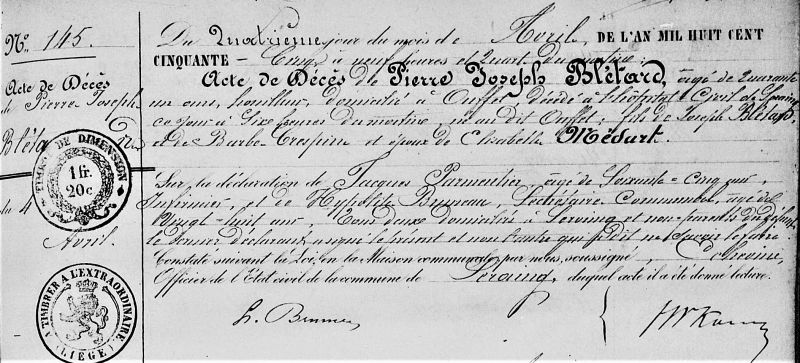 N.º 145.
Acte de Décès
de Pierre Joseph
Blétard
du 4
Avril.
TIMBRE DE DIMENSION
1 fr.
20 c
A TIMBRER A L'EXTRAORDINAIRE
(LIÈGE)
Du Quatrième jour du mois de Avril, DE L'AN MIL HUIT CENT
CINQUANTE - Cinq à neuf heures et Quart du matin;
Acte de Décès de Pierre Joseph Blétard, agé de Quarante
un ans, houilleur, domicilié à Ouffet, décédé à l'hôpital Civil de Seraing
ce jour à Six heures du matin, né au dit Ouffet; fils de Joseph Blétard
et de Barbe Crespin et époux de Elisabeth Médart.
Sur la déclaration de Jacques Parmentier agé de Soixante-Cinq ans,
Infirmier, et de Hypolite Bruneau, Secrétaire Communal, agé de
Vingt-huit ans, Tous deux domiciliés à Seraing et non-parents du défunt
le Second déclarant a signé le présent et non l'autre qui a dit ne savoir le faire.
Constaté suivant la Loi, en la Maison communale par nous, soussigné,
Officier de l'Etat civil de la commune de Seraing, duquel acte il a été donné lecture.